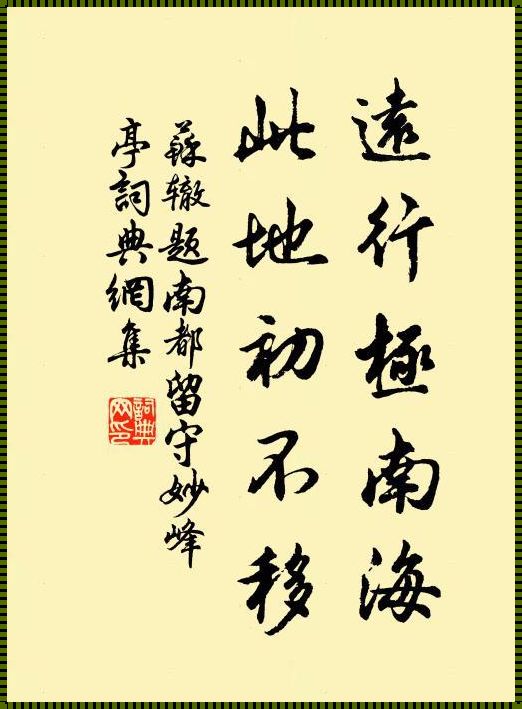 遠行極南海
此地初不移
蘇辙题南都留守妙峰
亭詞典網集
詞典
网印